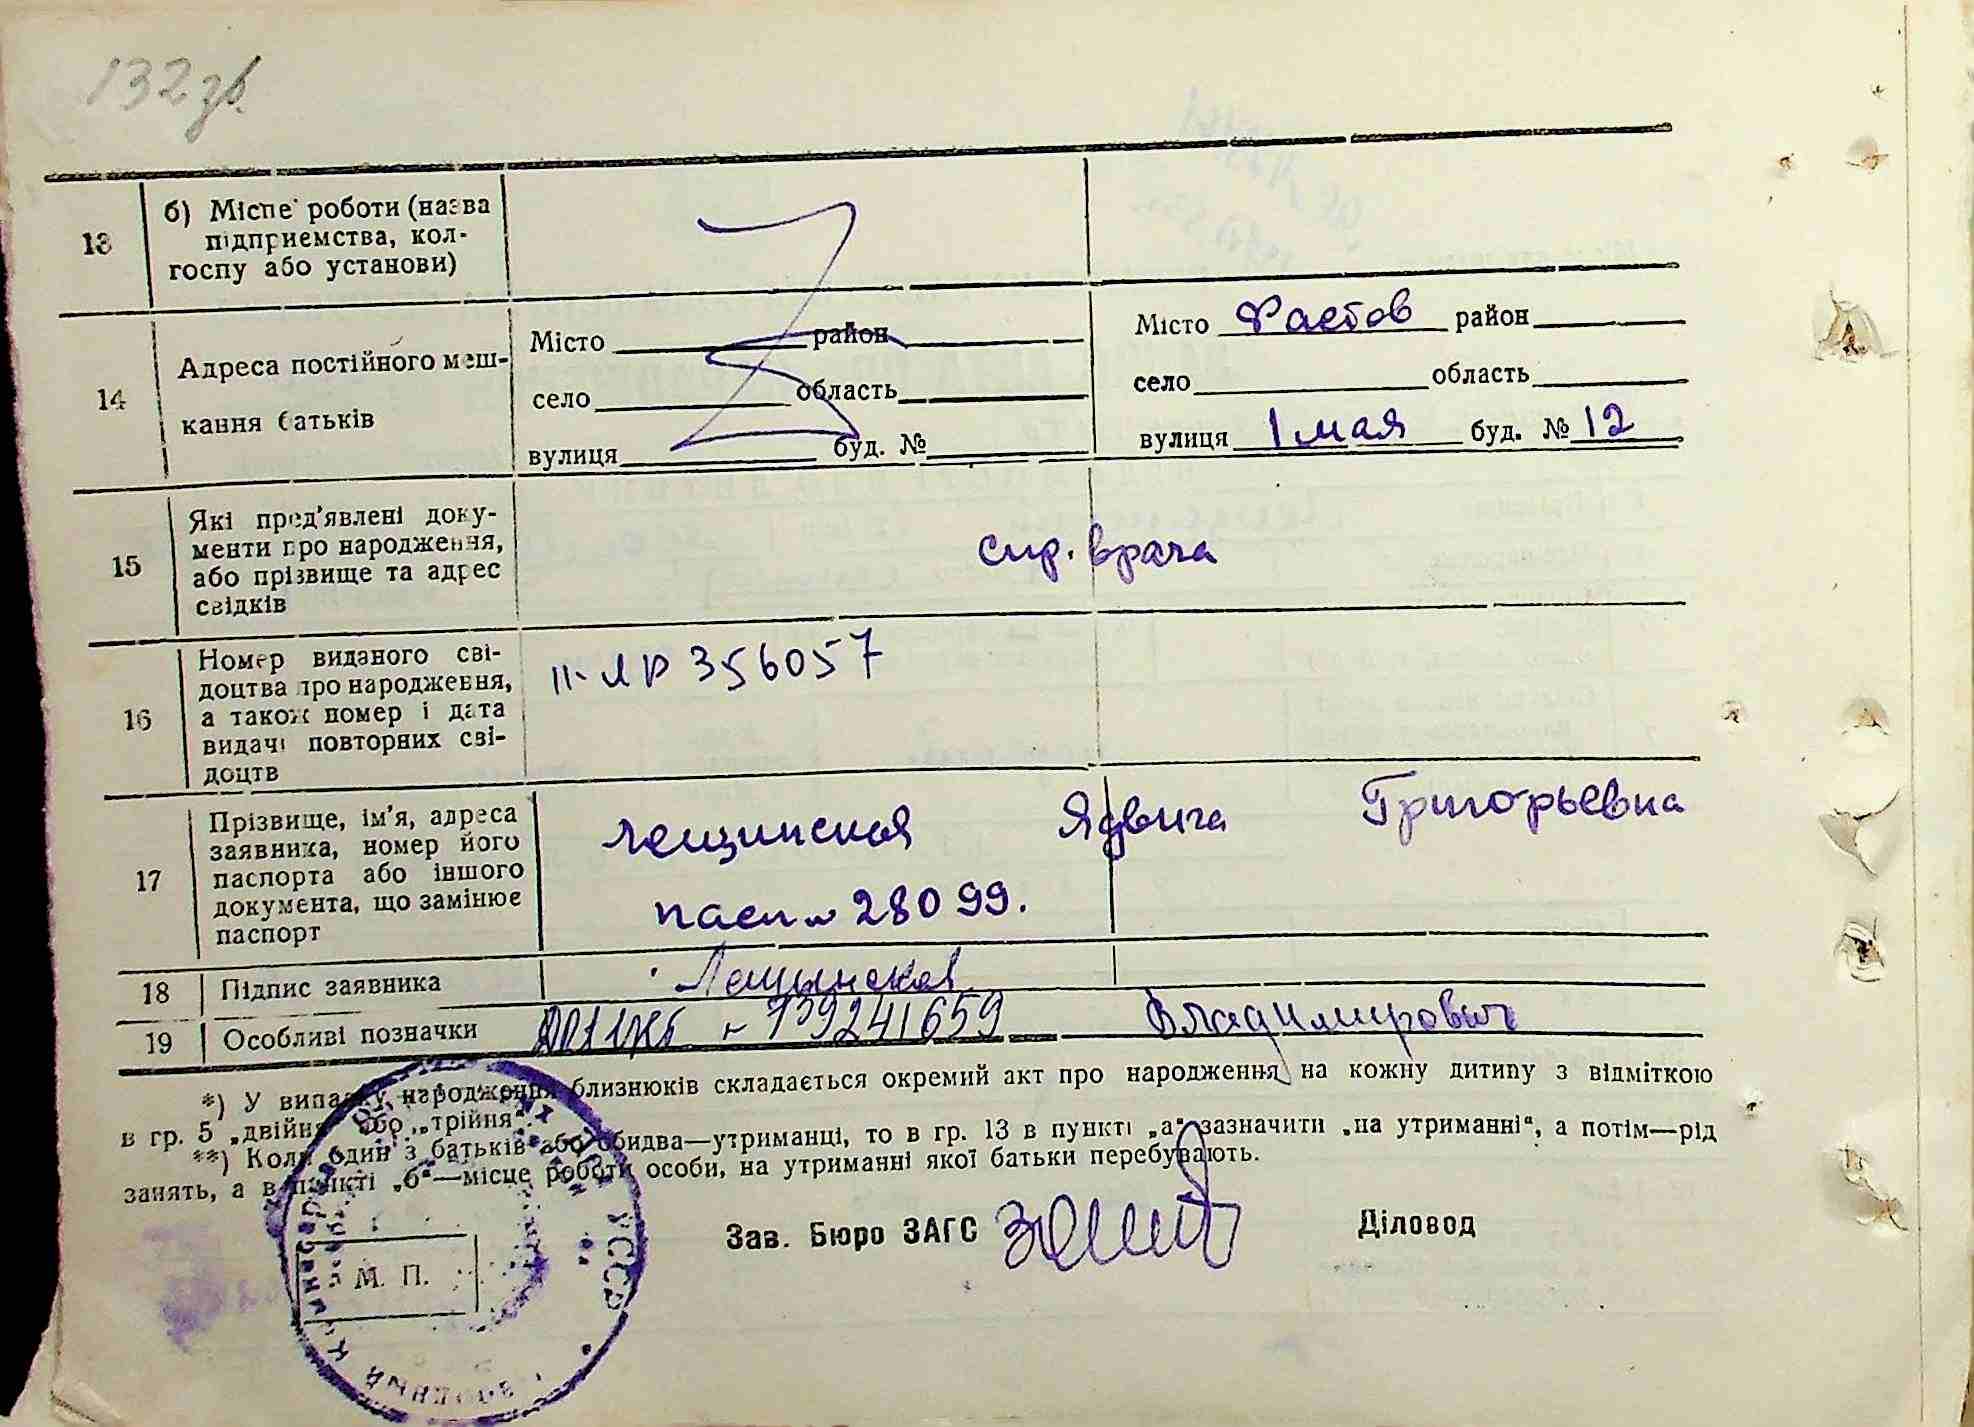 132 зв.
13
б) Місце роботи (назва
підприємства, кол-
госпу або установи)
14
Адреса постійного меш-
кання батьків
Місто район
село область
вулиця буд. №
Місто Фастов район
село область
вулиця 1 мая буд. № 12
15
Які пред'явлені доку-
менти про народження,
або прізвище та адрес
свідків
спр. врача
16
Номер виданого сві-
доцтва про народження,
а також номер і дата
видачі повторних сві-
доцтв
II-ЛР 356057
17
Прізвище, ім'я, адреса
заявника, номер його
паспорта або іншого
документа, що замінює
паспорт
Лещинская Ядвига Григорьевна
пасп № 28099.
18
Підпис заявника
Лещинская
19
Особливі позначки
739241659 Владимирович
*) У випадку народження близнюків складається окремий акт про народження на кожну дитину з відміткою
в гр. 5 „двійня“ або „трійня“.
**) Коли один з батьків або обидва—утриманці, то в гр. 13 в пункті „а“ зазначити „на утриманні“, а потім—рід
занять, а в пункті „б“—місце роботи особи, на утриманні якої батьки перебувають.
Зав. Бюро ЗАГС
Діловод
М. П.
УССР